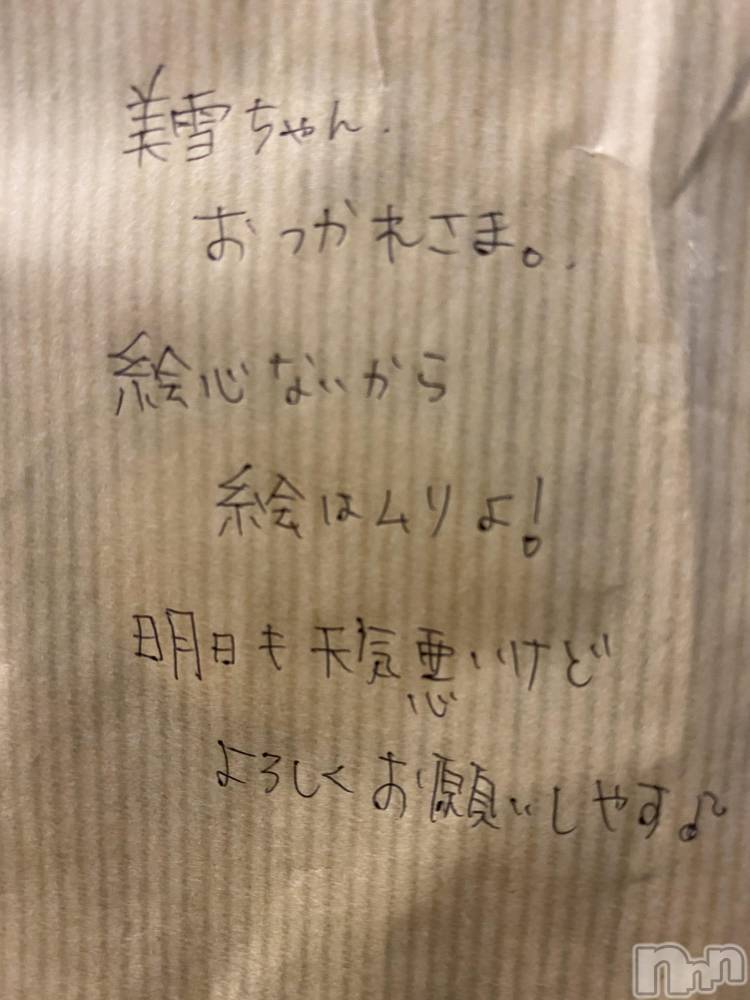 美雪ちゃん.
おつかれさま。.
絵心ないから
絵はムリよ!
明日も天気悪いけど
よろしくお願いしやす♪
nnn